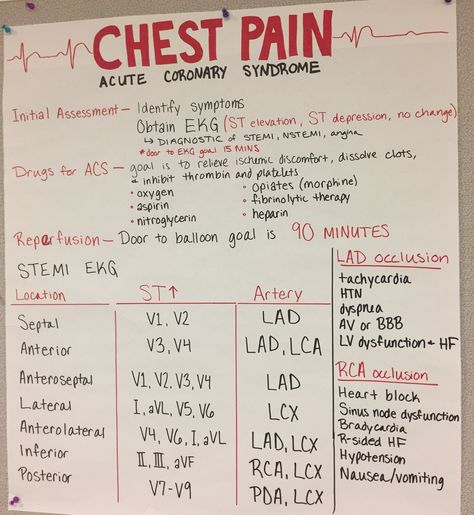 CHEST PAIN
ACUTE CORONARY SYNDROME
Initial Assessment — Identify symptoms
Obtain EKG (ST elevation, ST depression, no change)
↳ DIAGNOSTIC of STEMI, NSTEMI, angina
*door to EKG goal 15 MINS
Drugs for ACS — goal is to relieve ischemic discomfort, dissolve clots,
& inhibit thrombin and platelets
• oxygen
• aspirin
• nitroglycerin
• opiates (morphine)
• fibrinolytic therapy
• heparin
Reperfusion — Door to balloon goal is 90 MINUTES
STEMI EKG
Location ST↑ Artery
Septal V1, V2 LAD
Anterior V3, V4 LAD, LCA
Anteroseptal V1, V2, V3, V4 LAD
Lateral I, aVL, V5, V6 LCX
Anterolateral V4, V6, I, aVL LAD, LCX
Inferior II, III, aVF RCA, LCX
Posterior V7-V9 PDA, LCX
LAD occlusion
tachycardia
HTN
dyspnea
AV or BBB
LV dysfunction + HF
RCA occlusion
Heart block
Sinus node dysfunction
Bradycardia
R-sided HF
Hypotension
Nausea/vomiting